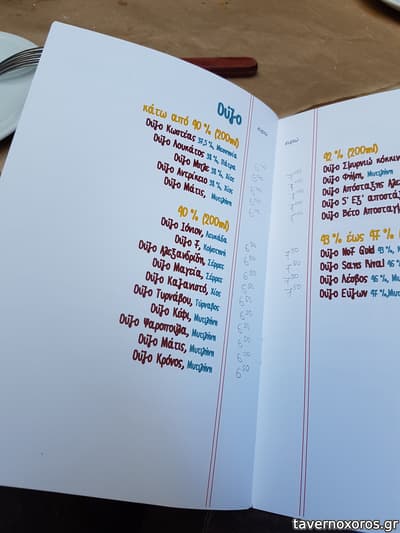 Ούζο
ευρώ
κάτω από 40 % (200ml)
Ούζο Κωστέας 37,5 %, Μεσσηνία
Ούζο Λουκάτος 38 %, Πάτρα
Ούζο Μπζε 38 %, Χίος
Ούζο Αντρίκειο 38 %, Χίος
Ούζο Μάτις, Μυτιλήνη
40 % (200ml)
Ούζο Ιόνιον, Λευκάδα
Ούζο F, Κομοτηνή
Ούζο Αλεξανδρίδη, Σέρρες
Ούζο Μαγεία, Σέρρες
Ούζο Καζανιστό, Χίος
Ούζο Τυρνάβου, Τύρναβος
Ούζο Κέφι, Μυτιλήνη
Ούζο Ψαροπούλα, Μυτιλήνη
Ούζο Μάτις, Μυτιλήνη
Ούζο Κρόνος, Μυτιλήνη
ευρώ
42 % (200ml)
Ούζο Σμυρνιώ κόκκιν
Ούζο Φήμη, Μυτιλήνη
Ούζο Απόσταξης Αλε
Ούζο 5' Εξ' αποστά
Ούζο Βέτο Απόσταγ
43 % έως 47 %
Ούζο No7 Gold 43 %,
Ούζο Sans Rival 46 %
Ούζο Λέσβος 46 %, Μυ
Ούζο Εύζων 47 %, Μυτ
tavernoxoros.gr